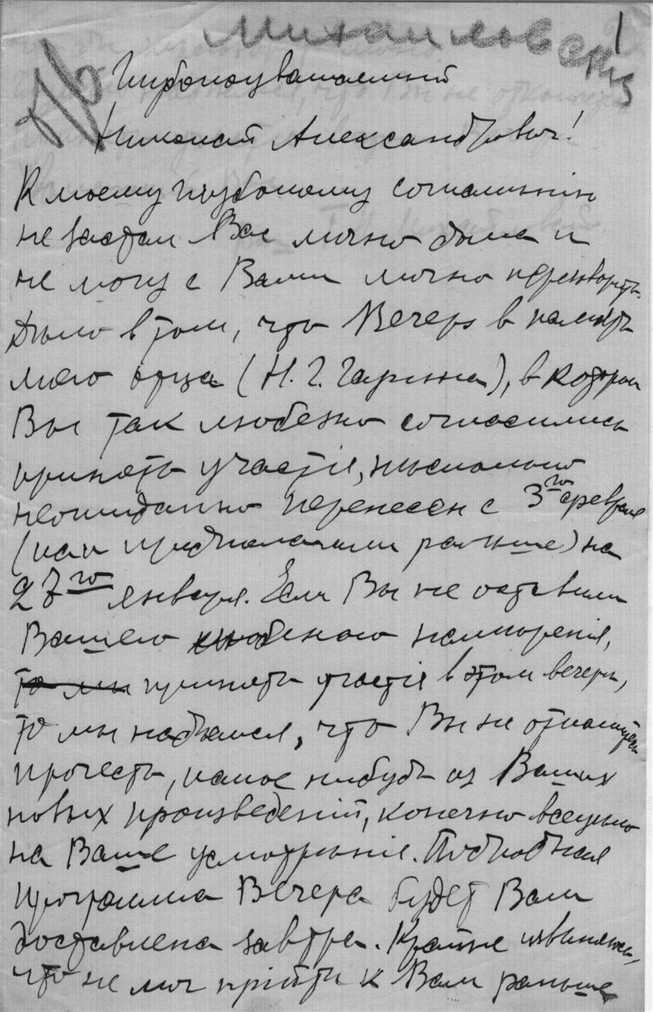 Михайловский
1
Глубокоуважаемый
Николай Александрович!
К моему глубокому сожалению
не застал Вас лично дома и
не могу с Вами лично переговорить.
Дѣло в том, что Вечеръ в память
моего отца (Н. Г. Гарина), в котором
Вы так любезно согласились
принять участіе, нѣсколько
неожиданно перенесен с 3го февраля
(как предполагали раньше) на
27го января. Если Вы не оставили
Вашего любезного намѣренія,
то мы принять участіе в этом вечерѣ,
то мы надѣемся, что Вы не откажете
прочесть, какое нибудь из Ваших
новых произведеній, конечно всецѣло
на Ваше усмотрѣніе. Подробная
программа Вечера будет Вам
доставлена завтра. Крайне извиняюсь,
что не мог прійти к Вам раньше